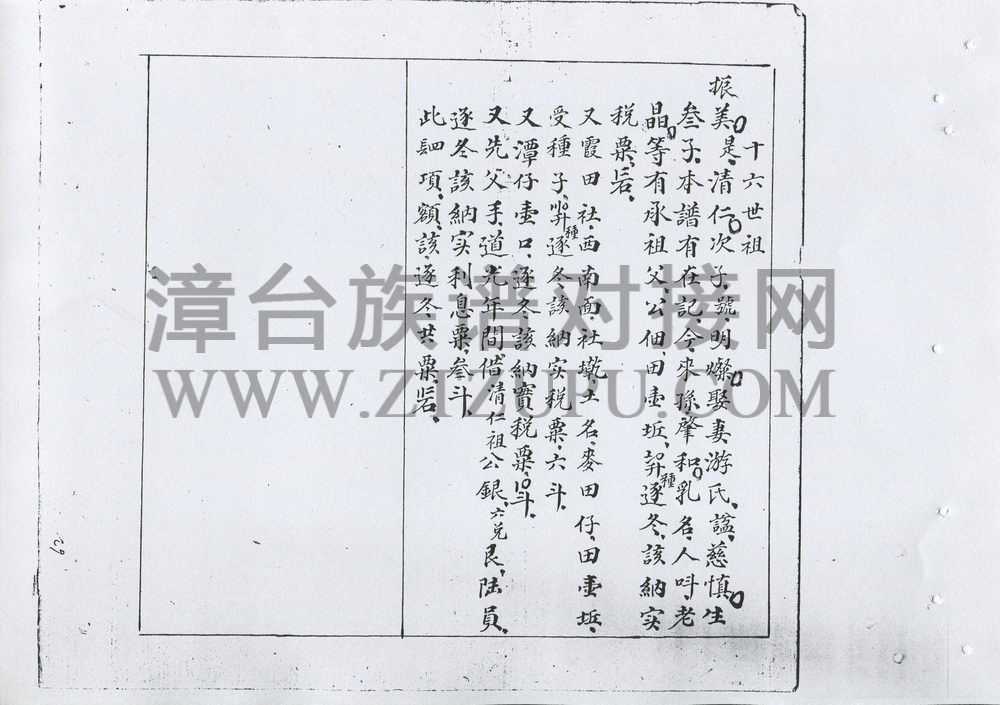 十六世祖
振美是清仁次子號明燦娶妻游氏謚慈慎生
叁子本譜有在記今來孫肇和乳名人呌老
晶等有承祖父公佃田壹坵種逐冬該納实
税粟
又霞田社西南面社墘土名麥田仔田壹坵
受種子種逐冬該納实税粟六斗
又潭仔壹口逐冬該納實税粟斗
又先父手道光年間借清仁祖公銀六兑艮陆員
逐冬該納实利息粟叁斗
此四項額該逐冬共粟
漳台族谱对接网
WWW.ZIZUPU.COM
62